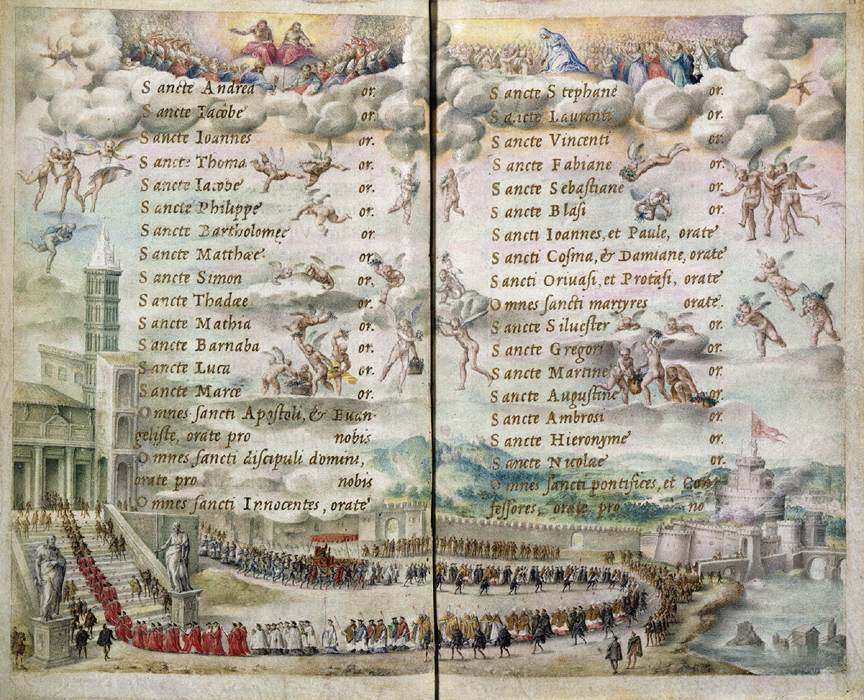 Sancte Andrea or.
Sancte Iacobe or.
Sancte Ioannes or.
Sancte Thoma or.
Sancte Iacobe or.
Sancte Philippe or.
Sancte Bartholomeę or.
Sancte Matthæe or.
Sancte Simon or.
Sancte Thadæe or.
Sancte Mathia or.
Sancte Barnaba or.
Sancte Luca or.
Sancte Marce or.
Omnes sancti Apostoli, & Euan-
geliste, orate pro nobis
Omnes sancti discipuli domini,
orate pro nobis
Omnes sancti Innocentes, orate
Sancte Stephane or.
Sancte Laurenti or.
Sancte Vincenti or.
Sancte Fabiane or.
Sancte Sebastiane or.
Sancte Blasi or.
Sancti Ioannes, et Paule, orate
Sancti Cosma, & Damiane, orate
Sancti Geruasi, et Protasi, orate
Omnes sancti martyres orate.
Sancte Siluester or.
Sancte Gregori or.
Sancte Martine or.
Sancte Augustine or.
Sancte Ambrosi or.
Sancte Hieronyme or.
Sancte Nicolae or.
Omnes sancti pontifices, et Con-
fessores, orate pro no